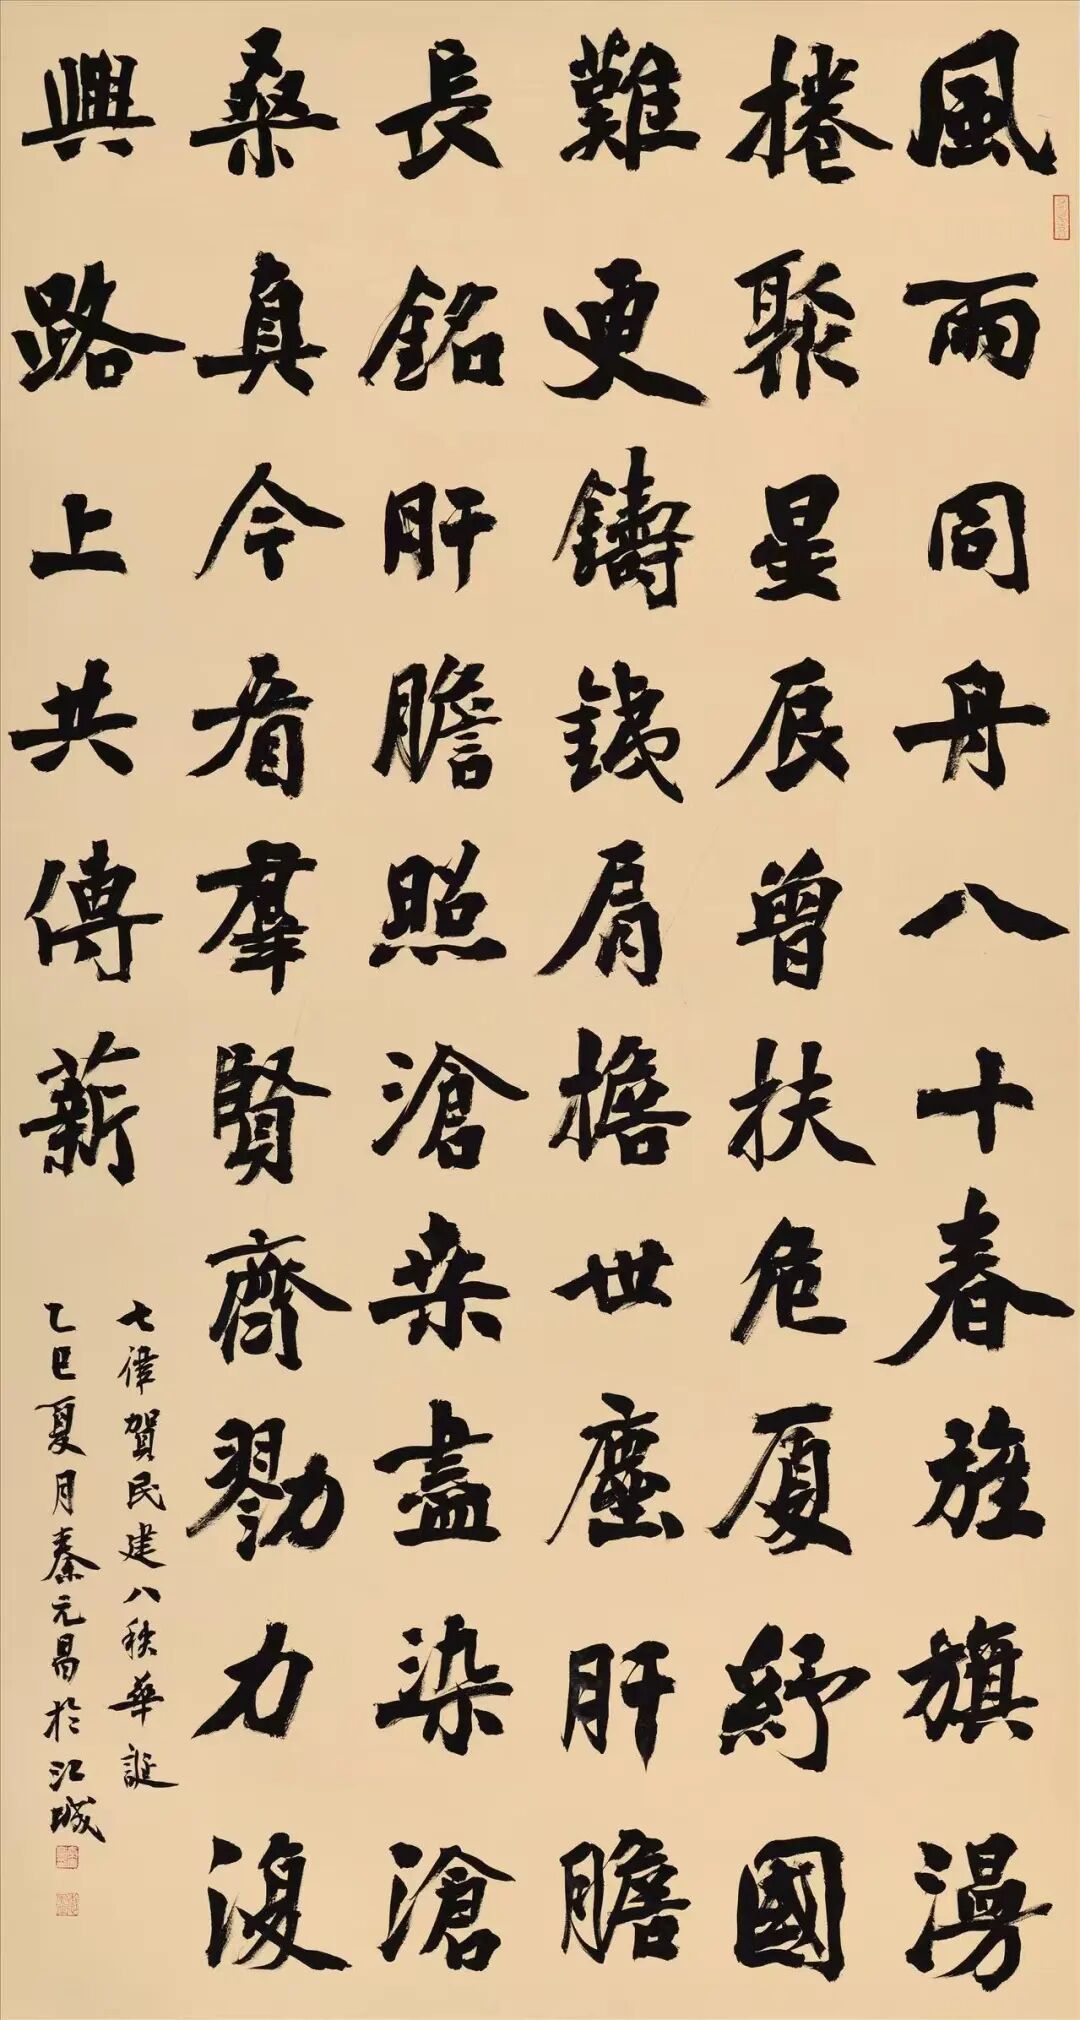 風雨同舟八十春旌旗漫
捲聚星辰曾扶危厦紓國
難更鑄鐵肩擔世塵肝膽
長銘肝膽照滄桒盡染滄
桑真今看羣賢齊勠力復
興路上共傳薪
七律賀民建八秩華誕
乙巳夏月秦元昌於江城